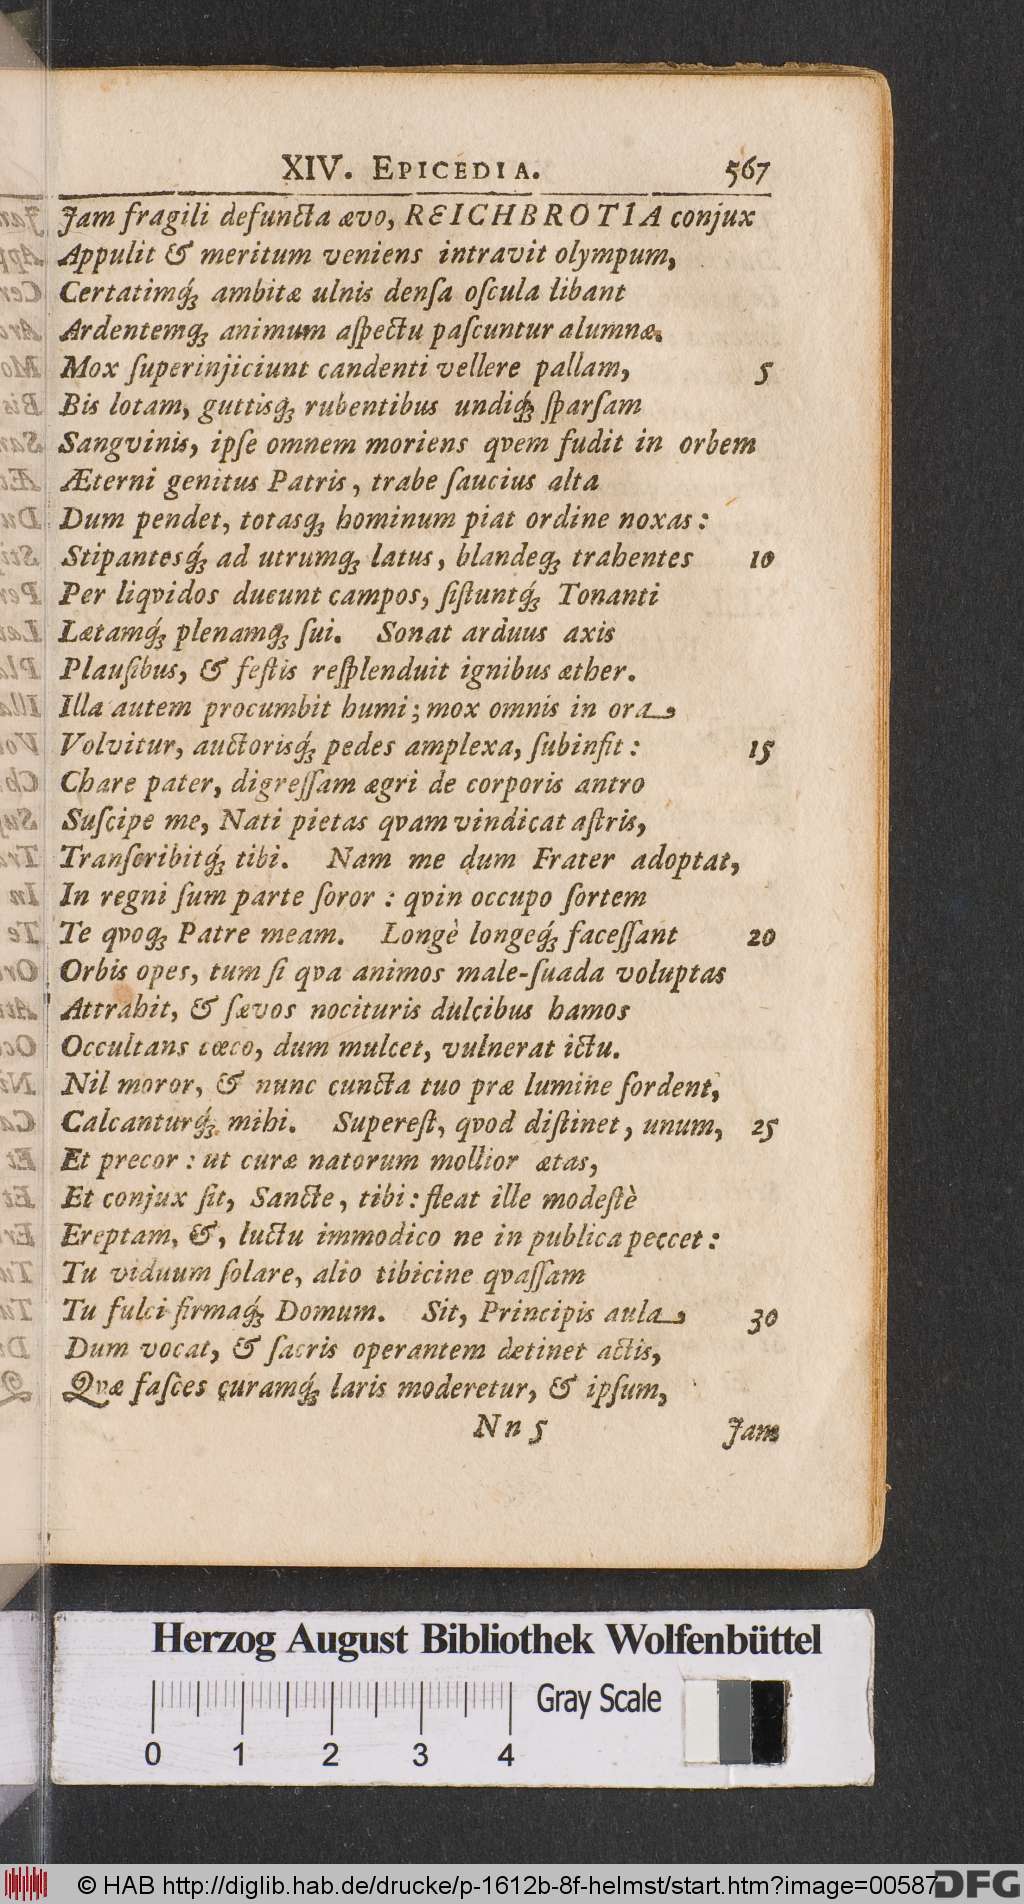 XIV. EPICEDIA. 567
Jam fragili defuncta ævo, REICHBROTIA conjux
Appulit & meritum veniens intravit olympum,
Certatimq́ꝫ ambitæ ulnis denſa oſcula libant
Ardentemqꝫ animum aſpectu paſcuntur alumnæ.
Mox ſuperinjiciunt candenti vellere pallam, 5
Bis lotam, guttisq́ꝫ rubentibus undiq́ꝫ ſparſam
Sangvinis, ipſe omnem moriens qvem fudit in orbem
Æterni genitus Patris, trabe ſaucius alta
Dum pendet, totasqꝫ hominum piat ordine noxas:
Stipantesq́ꝫ ad utrumqꝫ latus, blandeqꝫ trahentes 10
Per liqvidos ducunt campos, ſiſtuntq́ꝫ Tonanti
Lætamq́ꝫ plenamqꝫ ſui. Sonat arduus axis
Plauſibus, & feſtis reſplenduit ignibus æther.
Illa autem procumbit humi; mox omnis in ora
Volvitur, auctorisq́ꝫ pedes amplexa, ſubinfit: 15
Chare pater, digreſſam ægri de corporis antro
Suſcipe me, Nati pietas qvam vindicat aſtris,
Tranſcribitq́ꝫ tibi. Nam me dum Frater adoptat,
In regni ſum parte ſoror: qvin occupo ſortem
Te qvoqꝫ Patre meam. Longè longeq́ꝫ faceſſant 20
Orbis opes, tum ſi qva animos male-ſuada voluptas
Attrahit, & ſævos nocituris dulcibus hamos
Occultans cœco, dum mulcet, vulnerat ictu.
Nil moror, & nunc cuncta tuo præ lumine ſordent,
Calcanturq́ꝫ mihi. Supereſt, qvod diſtinet, unum, 25
Et precor: ut curæ natorum mollior ætas,
Et conjux ſit, Sancte, tibi: fleat ille modeſtè
Ereptam, &, luctu immodico ne in publica peccet:
Tu viduum ſolare, alio tibicine qvaſſam
Tu fulci firmaq́ꝫ Domum. Sit, Principis aula, 30
Dum vocat, & ſacris operantem detinet actis,
Qvæ faſces curamq́ꝫ laris moderetur, & ipſum,
Nn 5 Jam
Herzog August Bibliothek Wolfenbüttel
Gray Scale
0 1 2 3 4
© HAB http://diglib.hab.de/drucke/p-1612b-8f-helmst/start.htm?image=00587
DFG